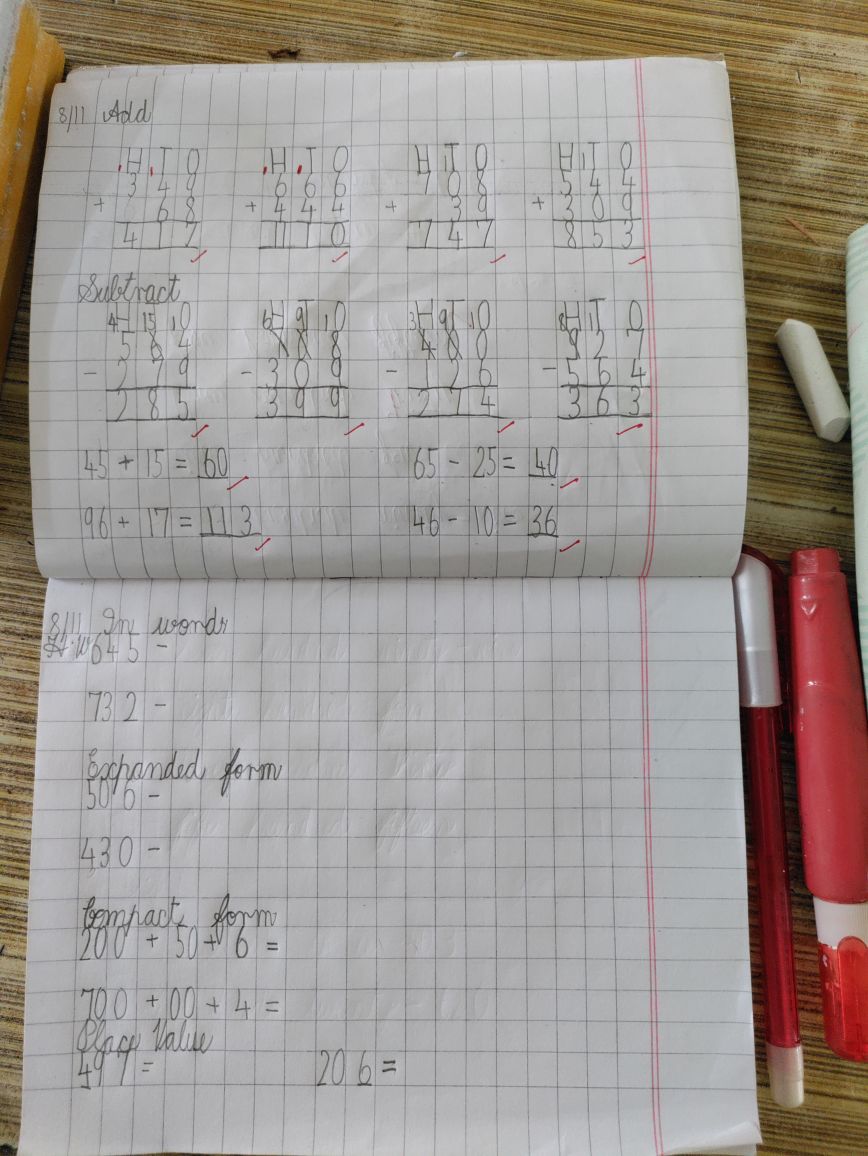 8/11 Add
H T O H T O H T O H T O
3 4 9 6 6 6 7 0 8 5 4 4
+ 6 8 + 4 4 4 + 3 9 + 3 0 9
4 1 7 1 1 1 0 7 4 7 8 5 3
Subtract
4 H 15 T 1 O 6 H 9 T 1 O 3 H 9 T 1 O 8 H 1 T O
5 6 4 7 0 8 4 0 0 9 2 7
- 2 7 9 - 3 0 9 - 1 2 6 - 5 6 4
2 8 5 3 9 9 2 7 4 3 6 3
45 + 15 = 60 65 - 25 = 40
96 + 17 = 113 46 - 10 = 36
8/11 In words
H.W 645 -
732 -
Expanded form
506 -
430 -
Compact form
200 + 50 + 6 =
700 + 00 + 4 =
Place Value
497 = 206 =